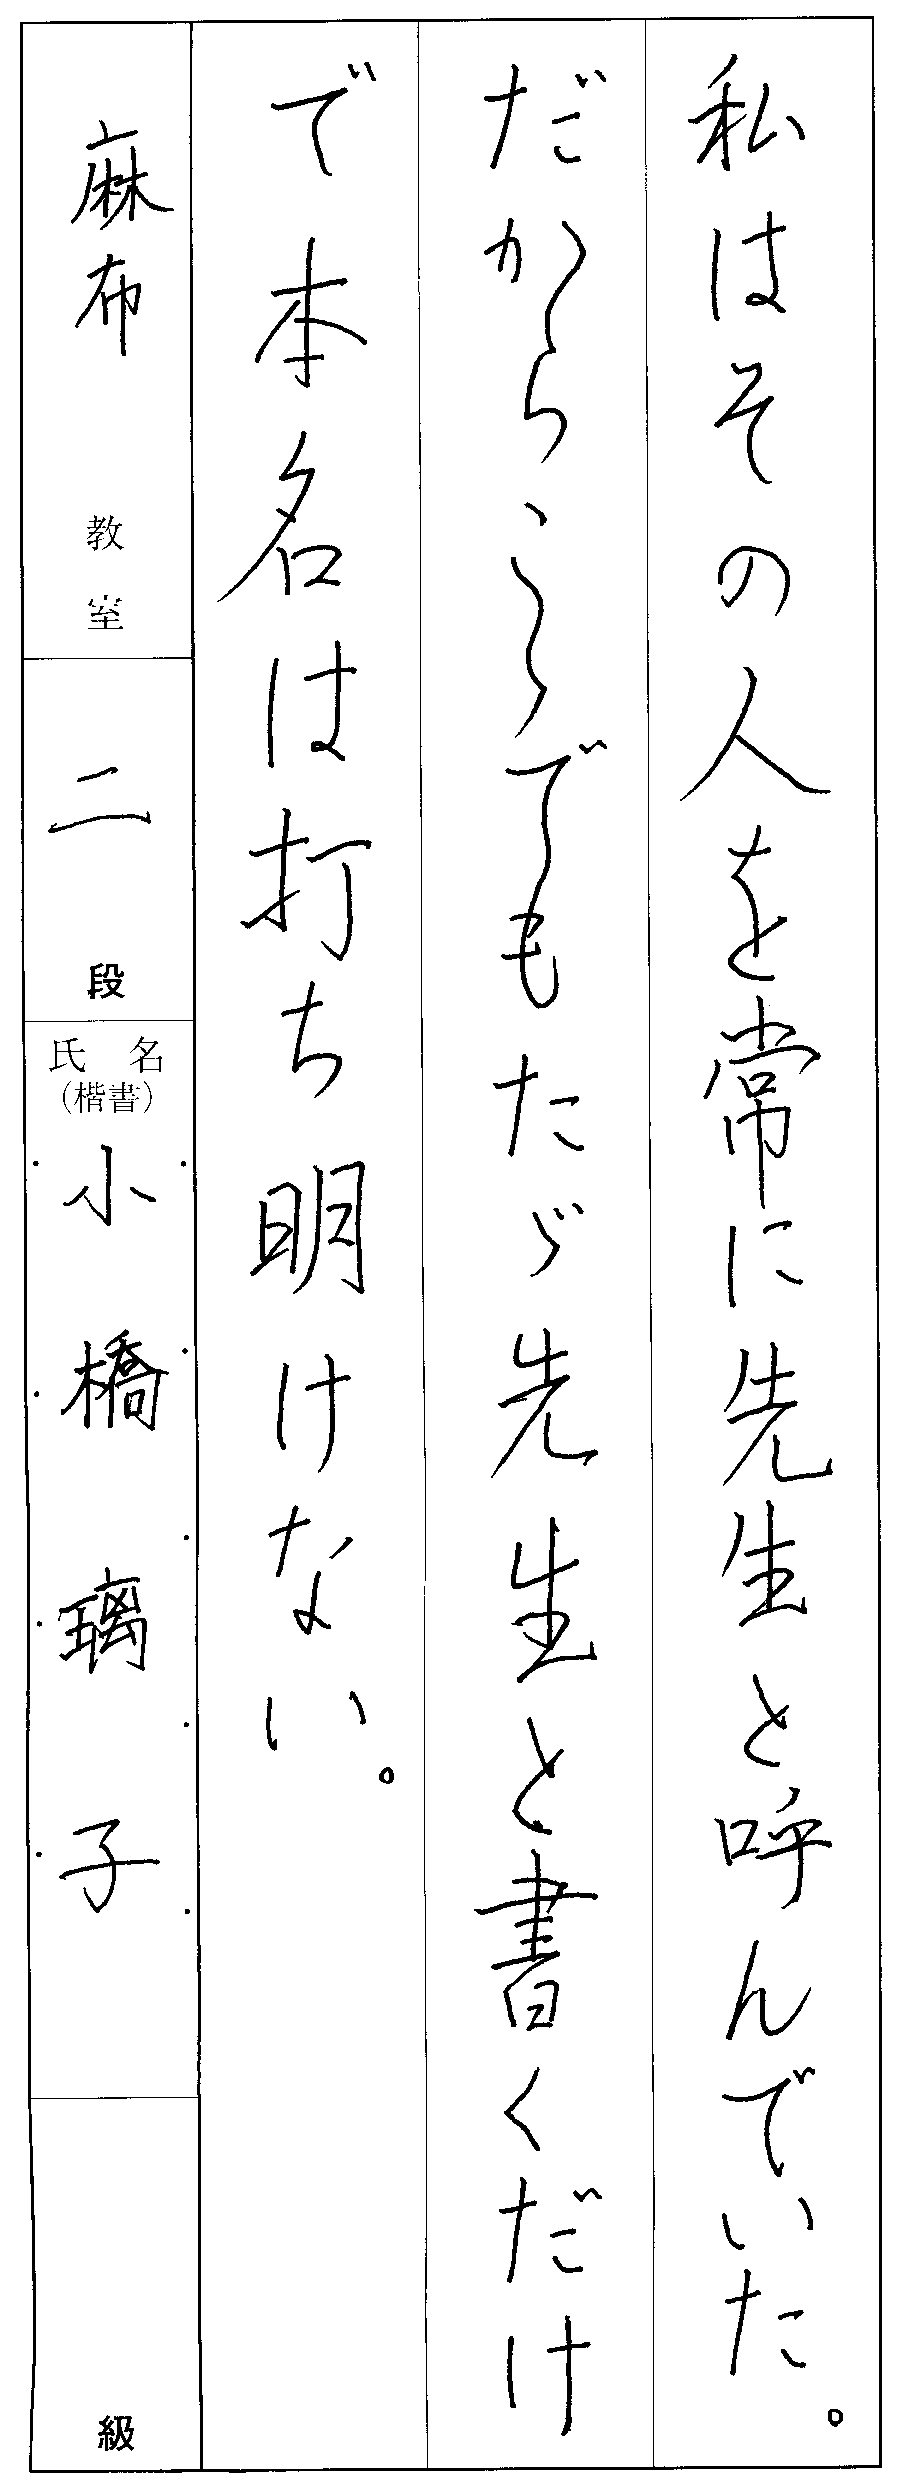 私はその人を常に先生と呼んでいた。
だからこゝでもたゞ先生と書くだけ
で本名は打ち明けない。
麻布 教室
二 段
氏名
(楷書)
小橋璃子
級